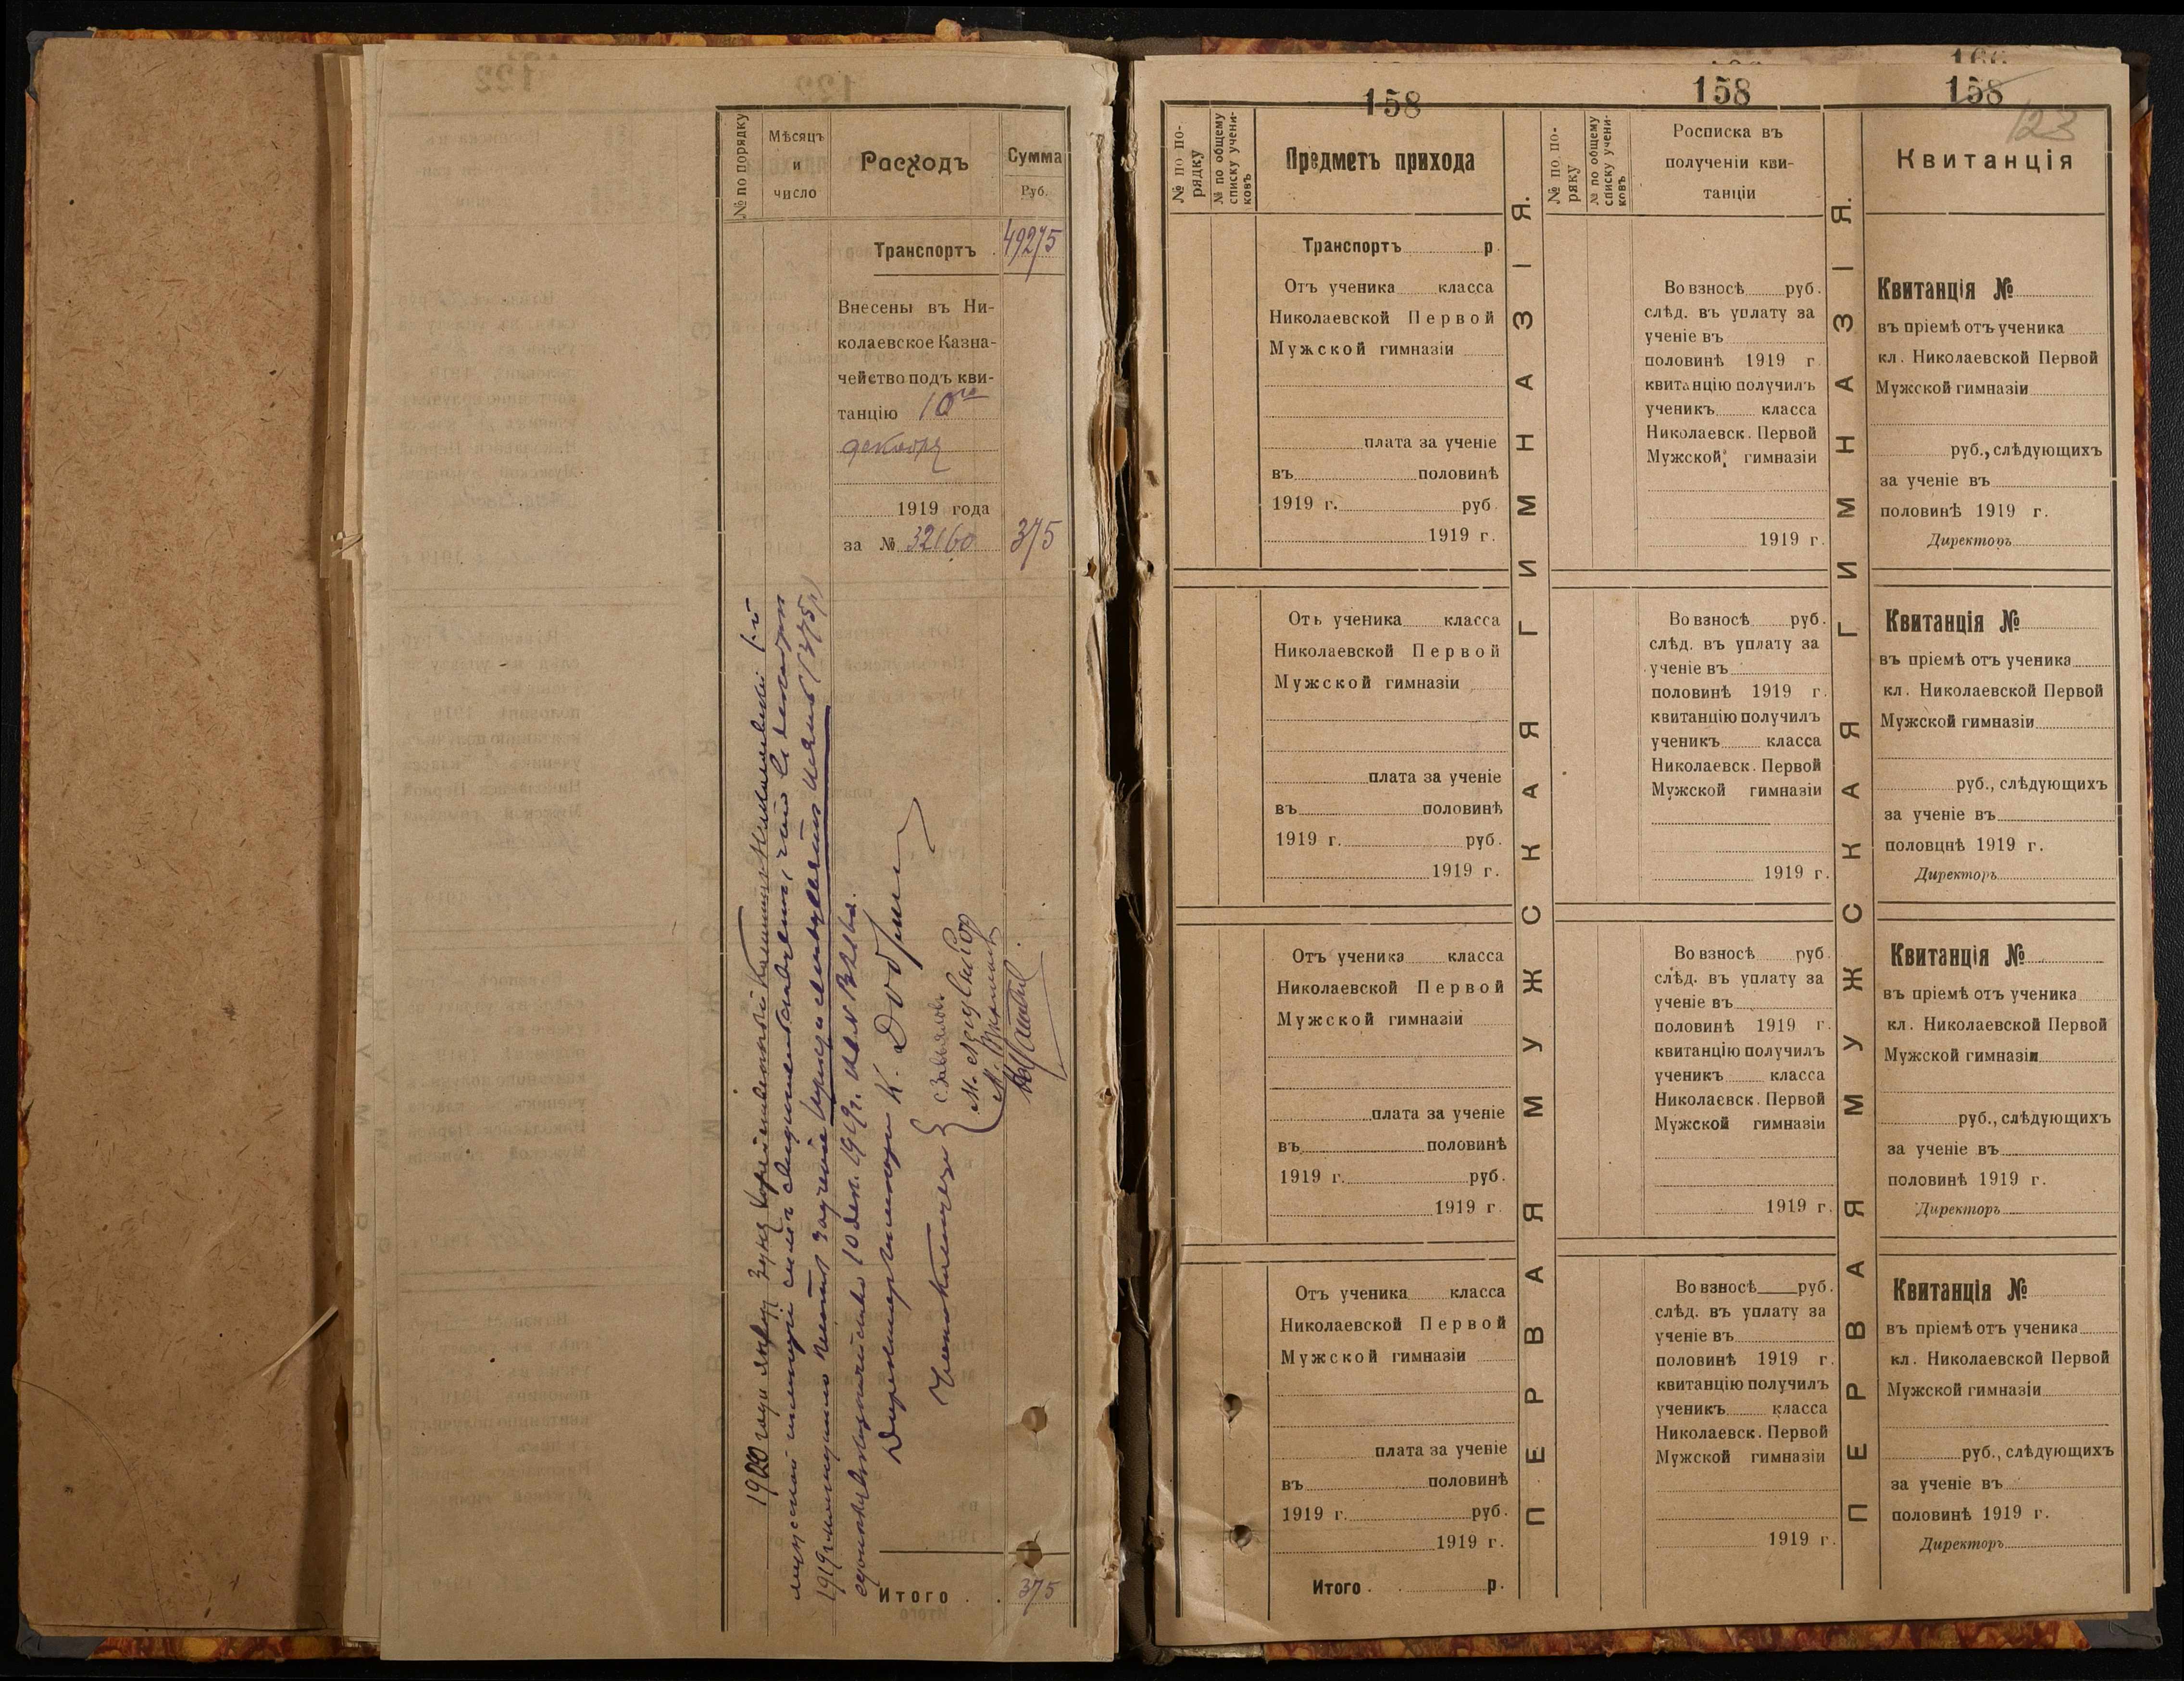 № по порядку
Мѣсяцъ
и
число
Расходъ
Сумма
Руб.
Транспортъ . 49275
Внесены въ Ни-
колаевское Казна-
чейство подъ кви-
танцію 10го
декабря
1919 года
за № 32160 375
1920 года января
1-й
мужской гимназіи
(375 р)
10 дек. 1919 г. за № 32160.
Директоръ гимназіи К.
Члены комиссіи
Итого . . 375
158
№ по по-
рядку
№ по общему
списку учени-
ковъ
Предметъ прихода
Транспортъ р.
Отъ ученика класса
Николаевской Первой
Мужской гимназіи
плата за ученіе
въ половинѣ
1919 г. руб.
1919 г.
Отъ ученика класса
Николаевской Первой
Мужской гимназіи
плата за ученіе
въ половинѣ
1919 г. руб.
1919 г.
Отъ ученика класса
Николаевской Первой
Мужской гимназіи
плата за ученіе
въ половинѣ
1919 г. руб.
1919 г.
Отъ ученика класса
Николаевской Первой
Мужской гимназіи
плата за ученіе
въ половинѣ
1919 г. руб.
1919 г.
Итого . р.
ПЕРВАЯ МУЖСКАЯ ГИМНАЗІЯ.
158
№ по по-
ряку
№ по общему
списку учени-
ковъ
Росписка въ
полученіи кви-
танціи
Во взносѣ руб.
слѣд. въ уплату за
ученіе въ
половинѣ 1919 г.
квитанцію получилъ
ученикъ класса
Николаевск. Первой
Мужской гимназіи
1919 г.
Во взносѣ руб.
слѣд. въ уплату за
ученіе въ
половинѣ 1919 г.
квитанцію получилъ
ученикъ класса
Николаевск. Первой
Мужской гимназіи
1919 г.
Во взносѣ руб.
слѣд. въ уплату за
ученіе въ
половинѣ 1919 г.
квитанцію получилъ
ученикъ класса
Николаевск. Первой
Мужской гимназіи
1919 г.
Во взносѣ руб.
слѣд. въ уплату за
ученіе въ
половинѣ 1919 г.
квитанцію получилъ
ученикъ класса
Николаевск. Первой
Мужской гимназіи
1919 г.
ПЕРВАЯ МУЖСКАЯ ГИМНАЗІЯ.
158
123
Квитанція
Квитанція №
въ пріемѣ отъ ученика
кл. Николаевской Первой
Мужской гимназіи
руб., слѣдующихъ
за ученіе въ
половинѣ 1919 г.
Директоръ
Квитанція №
въ пріемѣ отъ ученика
кл. Николаевской Первой
Мужской гимназіи
руб., слѣдующихъ
за ученіе въ
половцнѣ 1919 г.
Директоръ
Квитанція №
въ пріемѣ отъ ученика
кл. Николаевской Первой
Мужской гимназіи
руб., слѣдующихъ
за ученіе въ
половинѣ 1919 г.
Директоръ
Квитанція №
въ пріемѣ отъ ученика
кл. Николаевской Первой
Мужской гимназіи
руб., слѣдующихъ
за ученіе въ
половинѣ 1919 г.
Директоръ